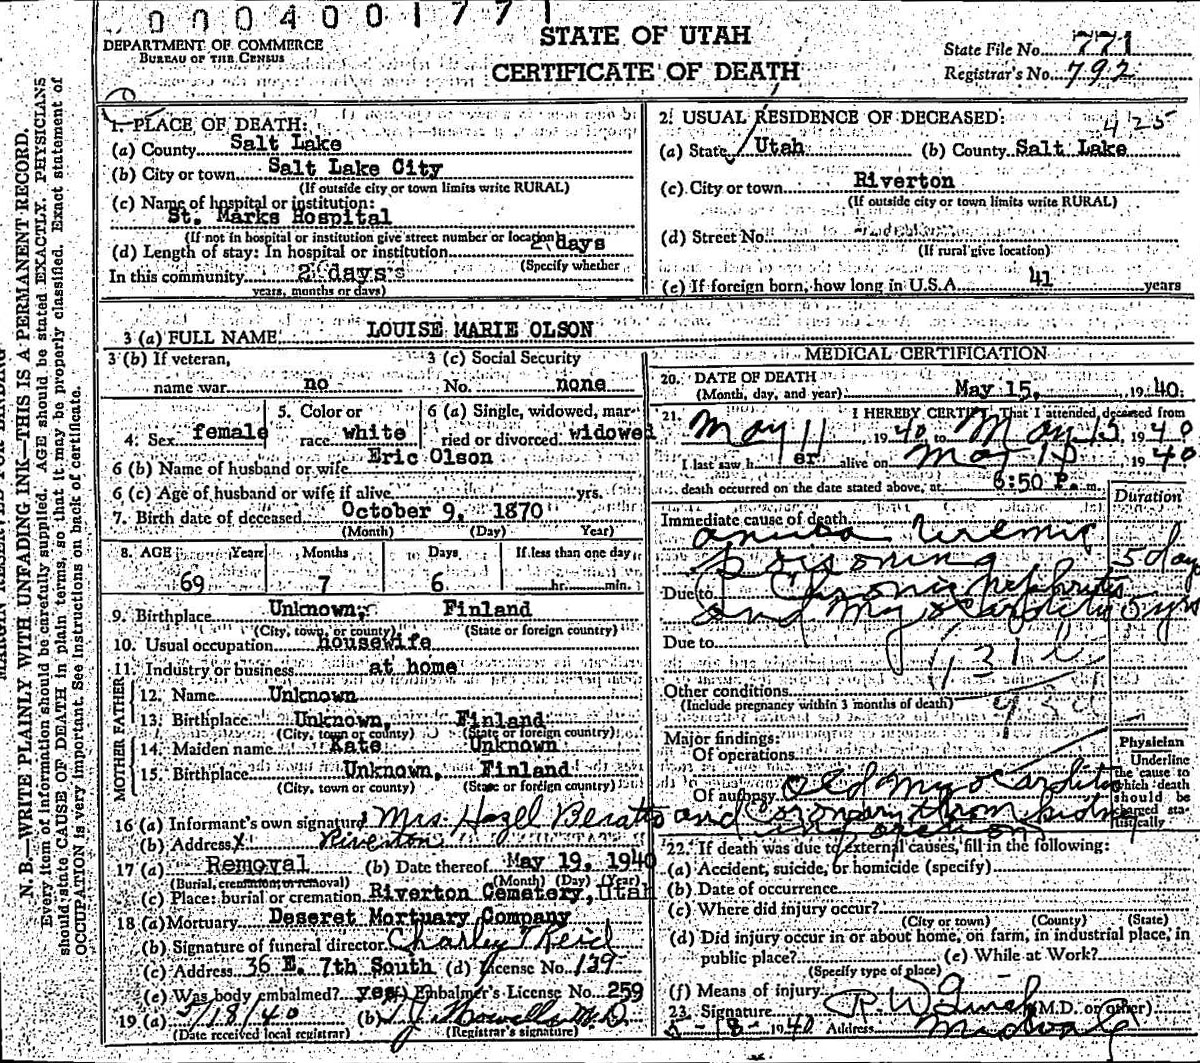 0004001771
STATE OF UTAH
CERTIFICATE OF DEATH
DEPARTMENT OF COMMERCE
BUREAU OF THE CENSUS
State File No. 771
Registrar's No. 792
N. B.—WRITE PLAINLY WITH UNFADING INK—THIS IS A PERMANENT RECORD.
Every item of information should be carefully supplied. AGE should be stated EXACTLY. PHYSICIANS
should state CAUSE OF DEATH in plain terms, so that it may be properly classified. Exact statement of
OCCUPATION is very important. See instructions on back of certificate.
1. PLACE OF DEATH:
(a) County Salt Lake
(b) City or town Salt Lake City
(If outside city or town limits write RURAL)
(c) Name of hospital or institution:
St. Marks Hospital
(If not in hospital or institution give street number or location)
(d) Length of stay: In hospital or institution 2 days
(Specify whether
In this community 2 days
years, months or days)
2. USUAL RESIDENCE OF DECEASED:
425
(a) State Utah (b) County Salt Lake
(c) City or town Riverton
(If outside city or town limits write RURAL)
(d) Street No.
(If rural give location)
(e) If foreign born, how long in U.S.A. 41 years
3 (a) FULL NAME LOUISE MARIE OLSON
3 (b) If veteran, 3 (c) Social Security
name war no No. none
5. Color or 6 (a) Single, widowed, mar-
4. Sex female race white ried or divorced widowed
6 (b) Name of husband or wife Eric Olson
6 (c) Age of husband or wife if alive yrs.
7. Birth date of deceased October 9, 1870
(Month) (Day) Year)
8. AGE Years Months Days If less than one day
69 7 6 hr. min.
9. Birthplace Unknown, Finland
(City, town, or county) (State or foreign country)
10. Usual occupation housewife
11. Industry or business at home
FATHER
12. Name Unknown
13. Birthplace Unknown, Finland
(City, town or county) (State or foreign country)
MOTHER
14. Maiden name Kate Unknown
15. Birthplace Unknown, Finland
(City, town or county) (State or foreign country)
16 (a) Informant's own signature Mrs. Hazel
(b) Address Riverton
17 (a) Removal (b) Date thereof May 19, 1940
(Burial, cremation, or removal) (Month) (Day) (Year)
(c) Place: burial or cremation Riverton Cemetery, Utah
18 (a) Mortuary Deseret Mortuary Company
(b) Signature of funeral director Charley T Reid
(c) Address 36 E. 7th South (d) License No. 139
(e) Was body embalmed? yes (f) Embalmer's License No. 259
19 (a) 5/18/40 (b) M.D.
(Date received local registrar) (Registrar's signature)
MEDICAL CERTIFICATION
20. DATE OF DEATH
(Month, day, and year) May 15, 1940.
21. I HEREBY CERTIFY, That I attended deceased from
May 11, 1940 to May 15 1940
I last saw her alive on May 1940
death occurred on the date stated above, at 6:50 P. m.
Duration
Immediate cause of death
Uremic
poisoning 5 days
Due to Chronic Nephritis
and Myocarditis 5 yrs
Due to
131
Other conditions
(Include pregnancy within 3 months of death)
93d
Major findings:
Of operations
Of autopsy Old Myocarditis
and Coronary thrombosis
Physician
Underline
the cause to
which death
should be
charged sta-
tistically
22. If death was due to external causes, fill in the following:
(a) Accident, suicide, or homicide (specify)
(b) Date of occurrence
(c) Where did injury occur?
(City or town) (County) (State)
(d) Did injury occur in or about home, on farm, in industrial place, in
public place? (e) While at Work?
(Specify type of place)
(f) Means of injury
23. Signature R. W. (M.D. or other)
5-18-1940 Address Midvale